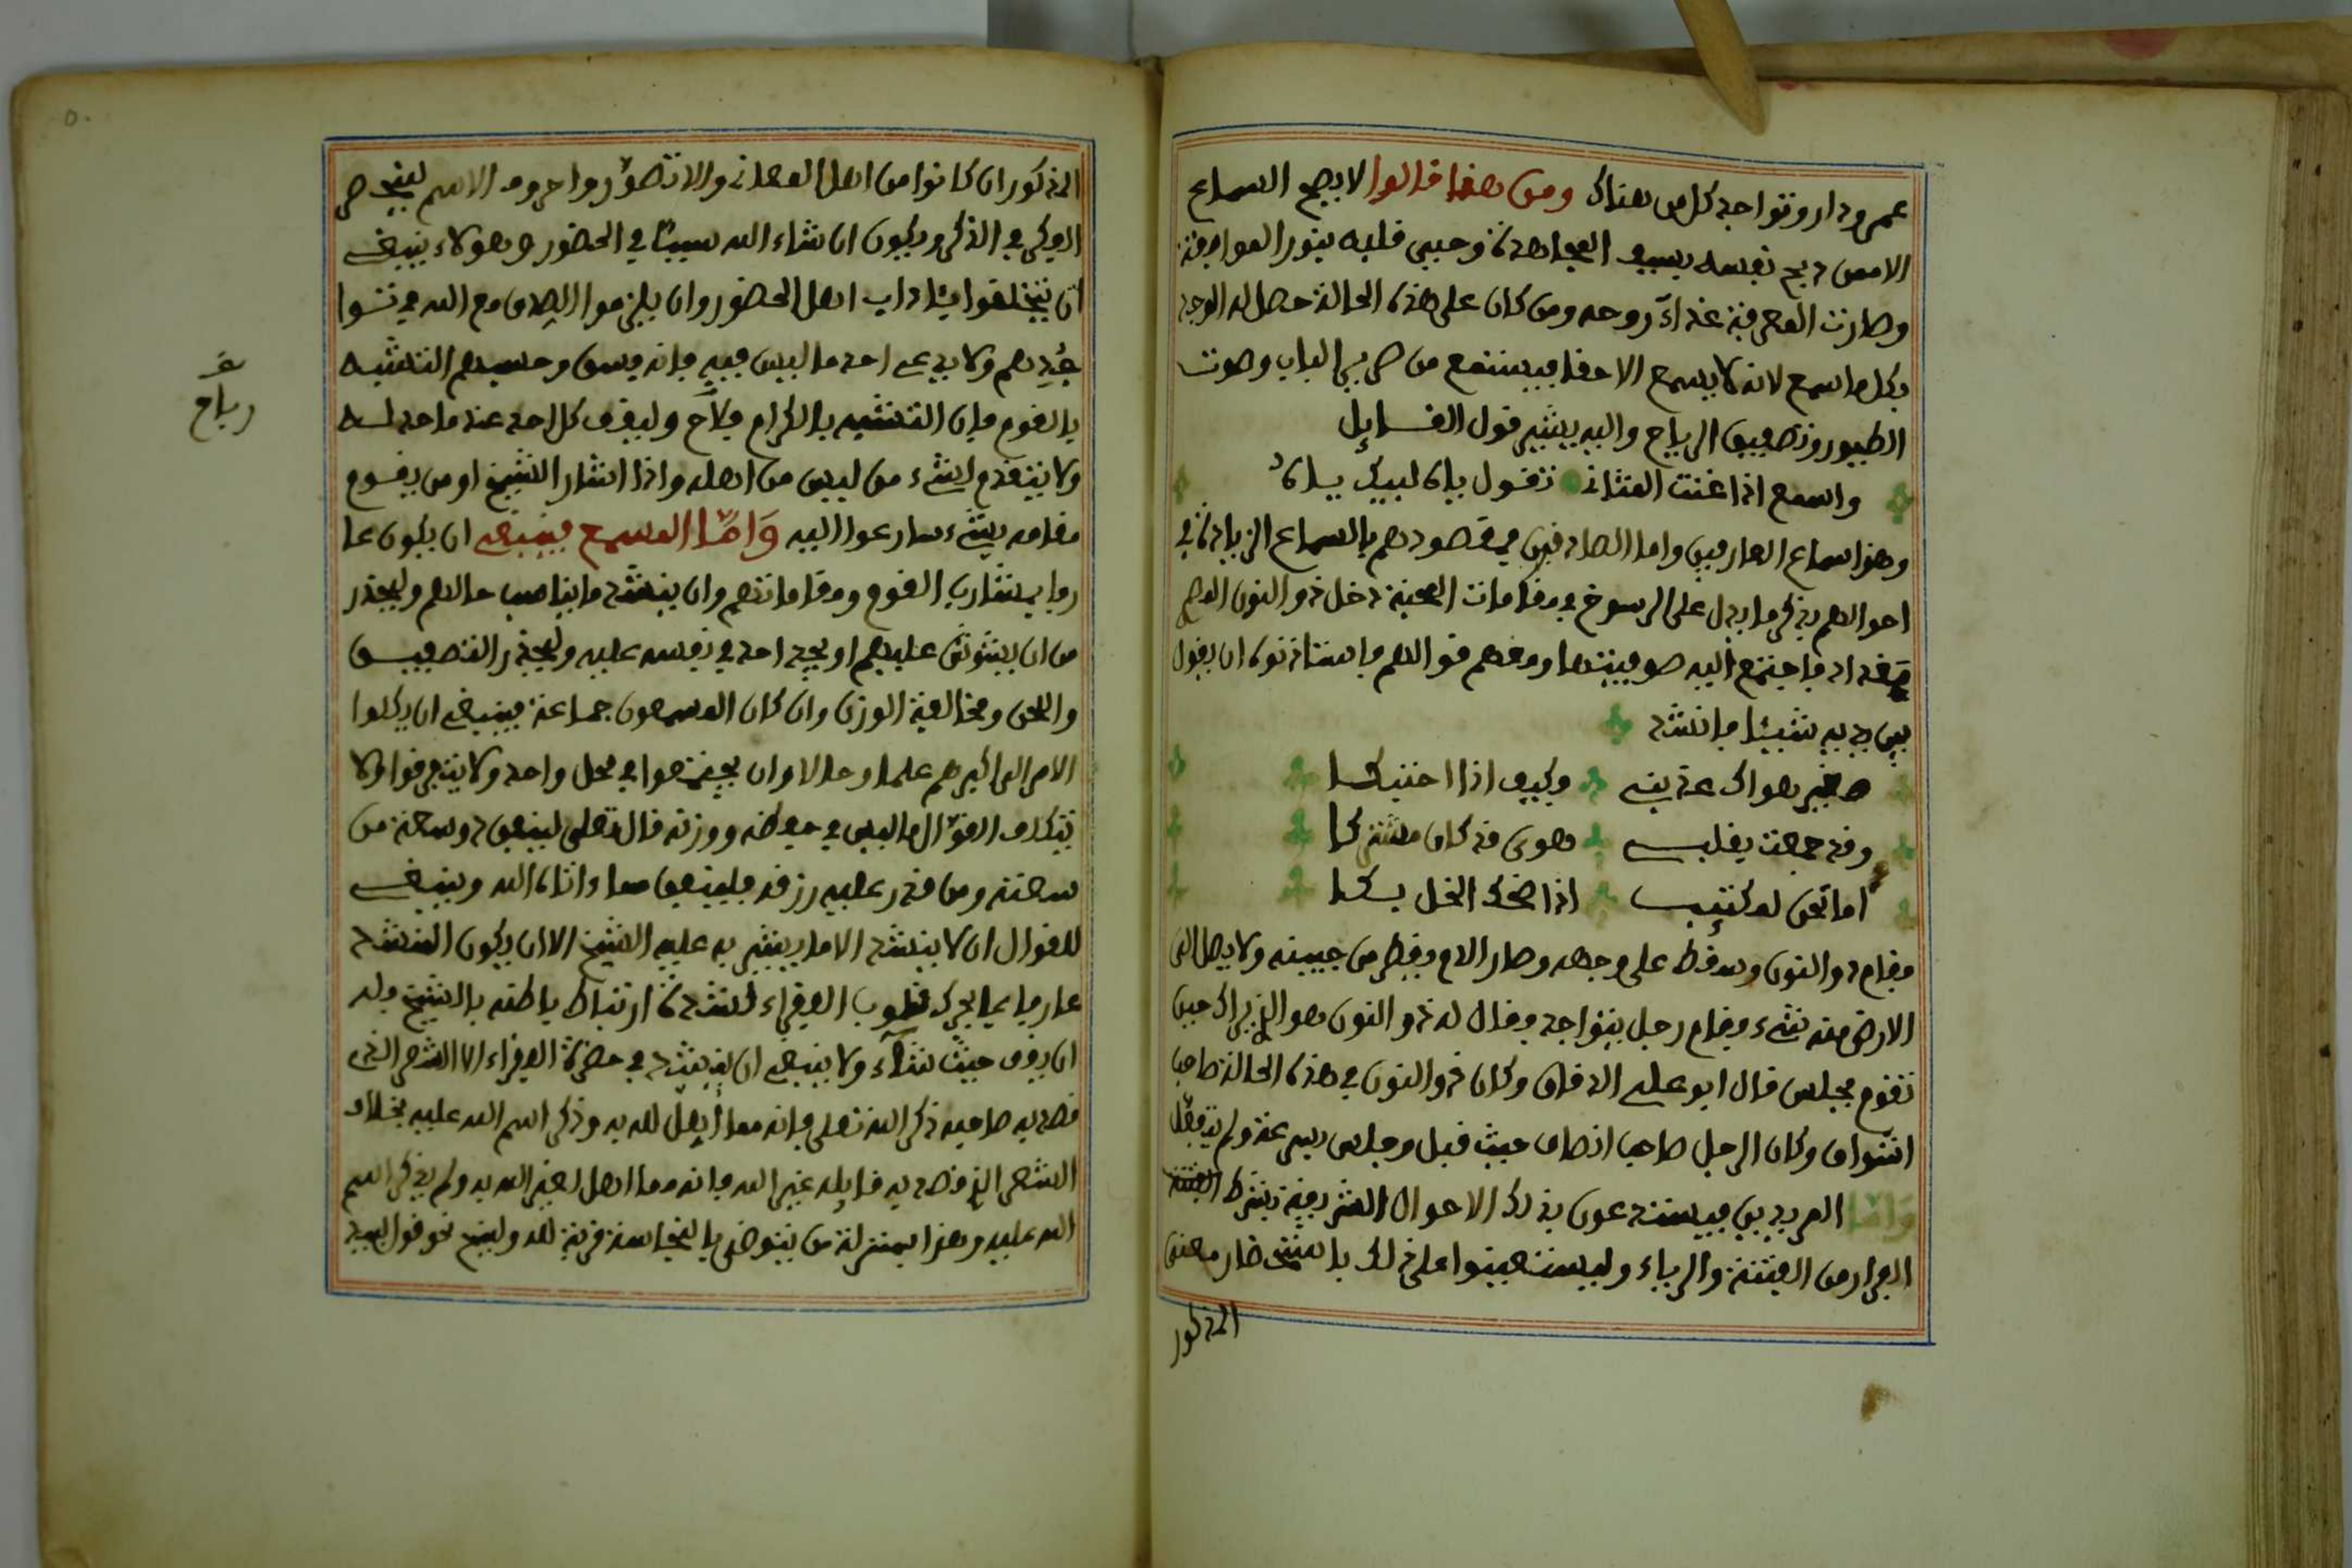 عمر ودار وتواجد كل من هناك ومن هنا قالوا لا يصح السماع
الا من ذبح نفسه بسيف المجاهدة وحيي قلبه بنور الموافقة
وصارت المعرفة غذاء روحه ومن كان على هذه الحالة حصل له الوجد
بكل ما سمع لانه لا يسمع الا حقا فيستمع من صرير الباب وصوت
الطيور وتصفيق الرياح واليه يشير قول القـائل
واسمع اذا غنت المثاني تقول ياه لبيك ياه
وهذا سماع العارفين واما الصادقين فمقصودهم بالسماع الزيادة في
احوالهم بذكر ما يدل على الرسوخ في مقامات المحبة دخل ذو النون المصري
بغداد فاجتمع اليه صوفيتها ومعهم قوالهم فاستاذنوه ان يقول
بين يديه شيئا فانشد
صغير هواك عذبني وكيف اذا احتنكا
وقد جمعت بقلبـي هوى قد كان مشتركا
اما تحن لمكتئب اذا ضحك الخل بكا
فقام ذو النون وسقط على وجهه وصار الدم يقطر من جبينه ولا يصل الى
الارض منه شيء وقام رجل يتواجد فقال له ذو النون هو الذي يراك حين
تقوم فجلس قال ابو علي الدقاق وكان ذو النون في هذه الحالة صاحب
اشراف وكان الرجل صاحب انصاف حيث قبل وجلس بسرعة ولم يتعلل
وَامّا المريدين فيستدعون بذلك الاحوال الشريفة بشرط
الفرار من الفتنة والرياء وليستعينوا على ذلك باستحضار معنى
المذكور
المذكور ان كانوا من اهل المعاني والا تصوّروا حروف الاسم لينحصر
الفكر في الذكر ويكون ان شاء الله سببًا في الحضور وهؤلاء ينبغي
ان يتخلقوا بئاداب اهل الحضور وان يلزموا الصدق مع الله في تشوا
جُدِهم ولا يدعي احد ما ليس فيه فانه فسق وحسبهم التشبه
بالقوم فإن التشبه بالكرام فلاح وليقف كل احد عند ما حد له
ولا يتقدم لشيء من ليس من اهله واذا اشار الشيخ او من يقوم
مقامه بشيء سارعوا اليه وَامّا المسمع فينبغي ان يكون عا
رفا بمشارب القوم ومقاماتهم وان ينشد ما يناسب حالهم وليحذر
من ان يشوش عليهم او يجد احد في نفسه عليه وليحذر التصفيق
واللحن ومخالفة الوزن وان كان المسمعون جماعة فينبغي ان يكلوا
الامر الى اكبرهم علما وحالا وان يجتمعوا في محل واحد ولا يتفرقوا ولا
يتكلف القوّال ما ليس في حفظه ووزنه قال تعلى لينفق ذو سعة من
سعته ومن قدر عليه رزقه فلينفق مماء اتاه الله وينبغي
للقوال ان لا ينشد الا ما يشير به عليه الشيخ الا ان يكون المنشد
عارفا بما يحرك قلوب الفقراء لشدة ارتباط باطنه بالشيخ فله
ان يقف حيث شآء ولا ينبغي ان ينشد في حضرة الفقراء الا الشعر الذي
قصد به صاحبه ذكر الله تعلى فإنه مما أُهلّ لله به وذكر اسم الله عليه بخلاف
الشعر الذي قصد به قائله غير الله فانه مما اهل لغير الله به ولم يذكر اسم
الله عليه وهذا بمنزلة من يتوضى بالنجاسة قربة لله
رباح